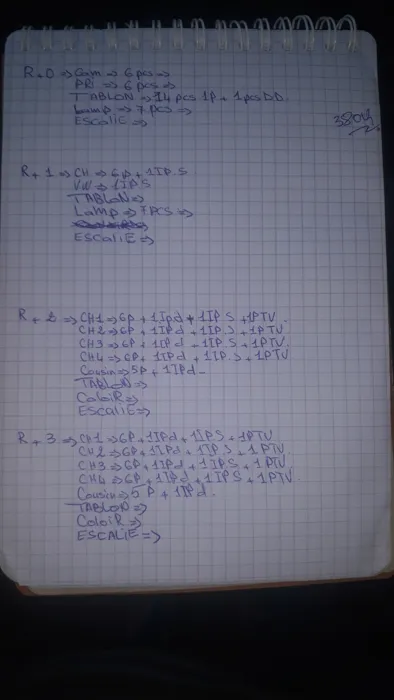 R+0 => Gam => 6 pcs =>
PRI => 6 pcs =>
TABLON => 14 pcs 1P + 1 pcs DD.
Lamp => 7 pcs =>
ESCaliE =>
R+1 => CH => 6p + 1IP.S
=> 1IPS
TABLON =>
Lamp => 7 PCS =>
ESCaliE =>
R+2 => CH1 => 6P + 1Ipd + 1IPS + 1PTV.
CH2 => 6P + 1IPd + 1IP.S + 1PTV
CH3 => 6P + 1IPd + 1IPS + 1PTV.
CH4 => 6P + 1IPd + 1IP.S + 1PTV
Cousin => 5P + 1IPd -
TABLON =>
CoLoiR =>
ESCaliE =>
R+3 => CH1 => 6P + 1IPd + 1IPS + 1PTV
CH2 => 6P + 1IPd + 1IP.S + 1PTV.
CH3 => 6P + 1IPd + 1IPS + 1PTV.
CH4 => 6P + 1IPd + 1IPS + 1PTV.
Cousin => 5P + 1IPd.
TABLON =>
CoLoiR =>
ESCALIE =>